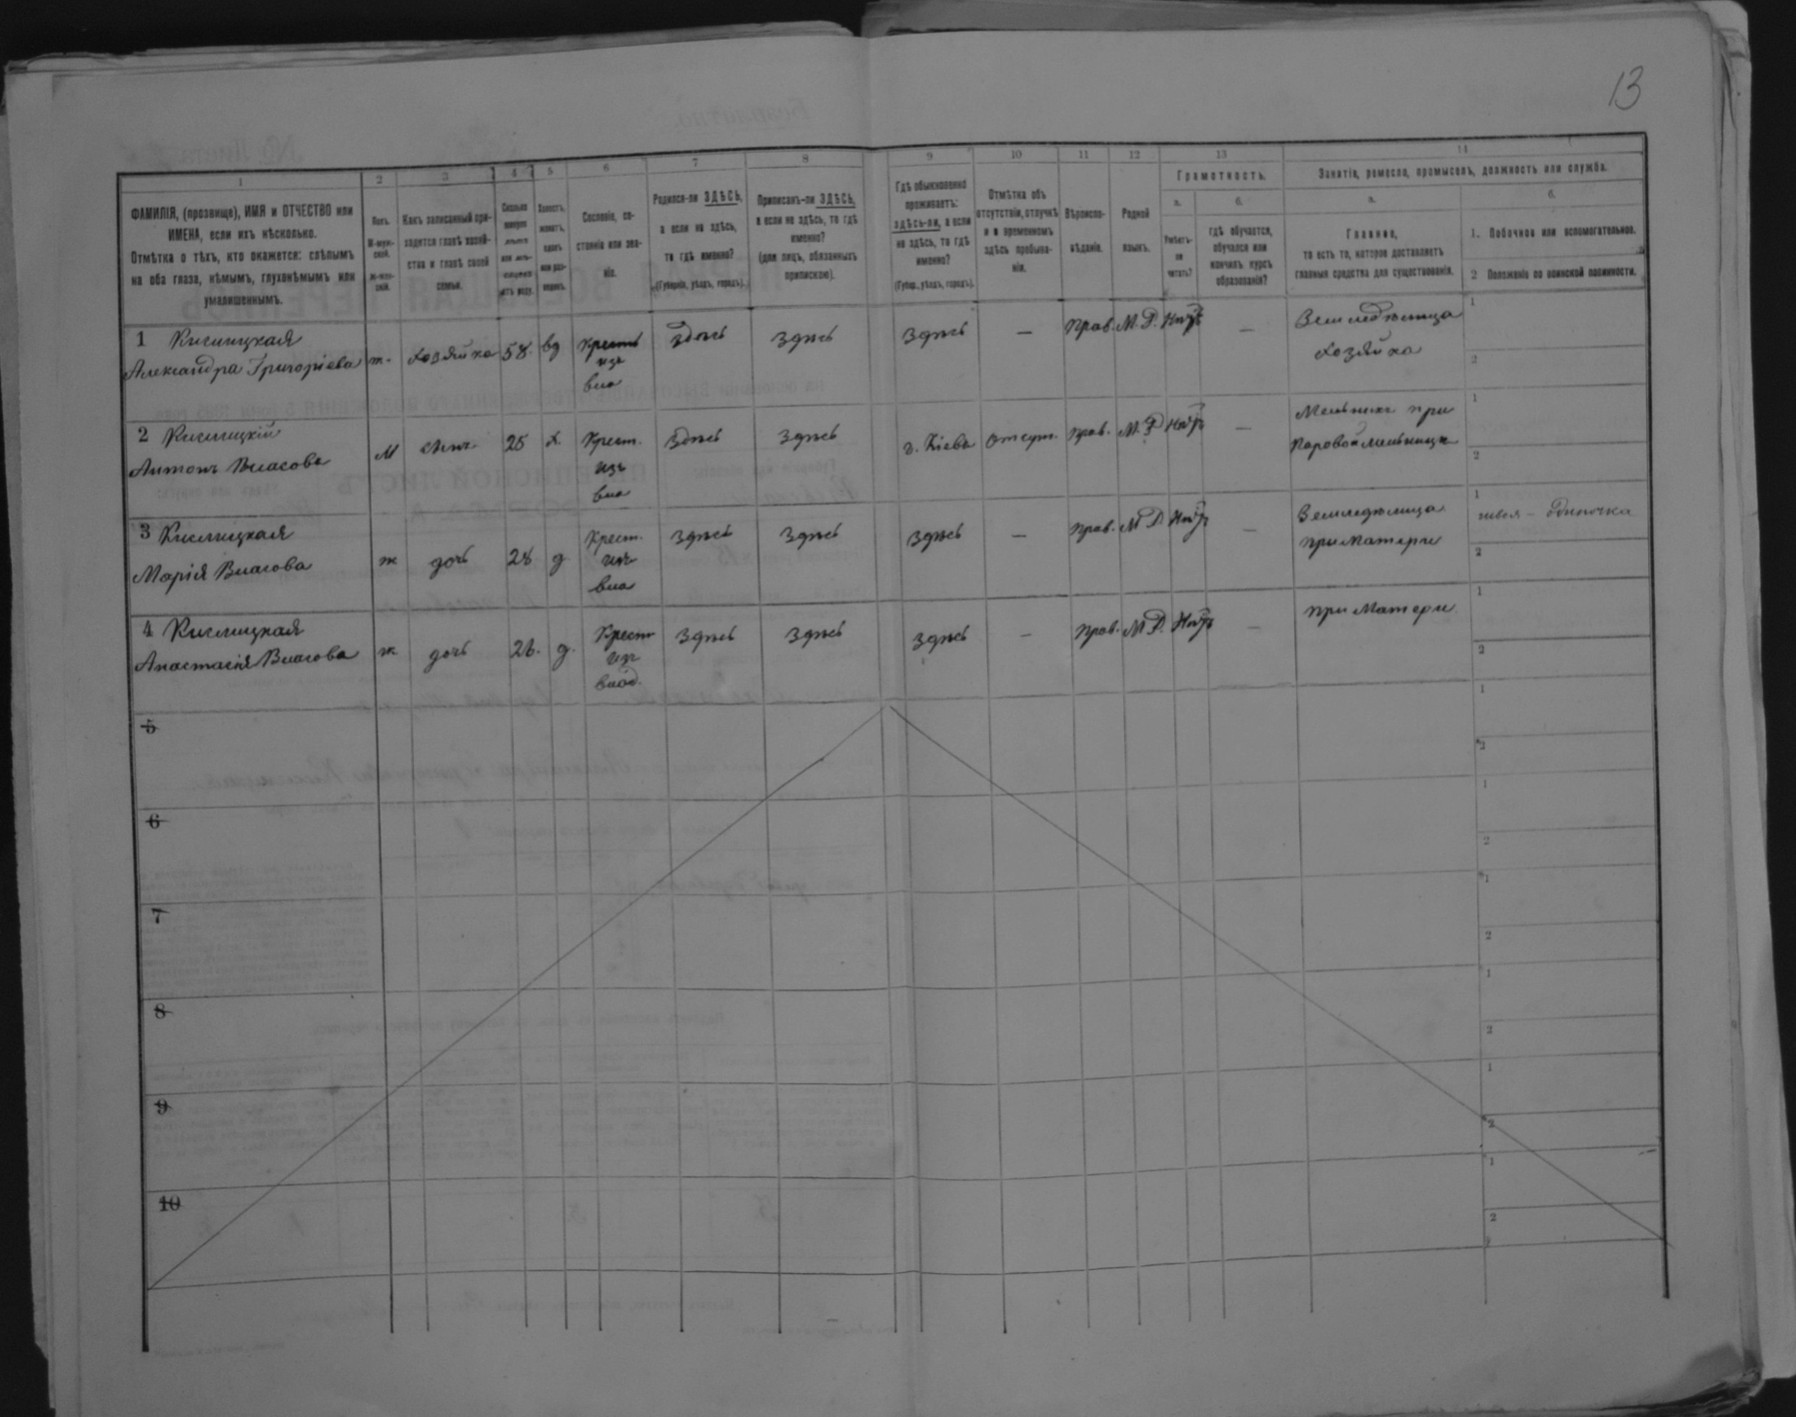 13
1
2
3
4
5
6
7
8
9
10
11
12
13
14
ФАМИЛІЯ, (прозвище), ИМЯ и ОТЧЕСТВО или
ИМЕНА, если ихъ нѣсколько.
Отмѣтка о тѣхъ, кто окажется: слѣпымъ
на оба глаза, нѣмымъ, глухонѣмымъ или
умалишеннымъ.
Какъ записанный при-
ходится главѣ хозяй-
ства и главѣ своей
семьи.
Сословіе, со-
стояніе или зва-
ніе.
Родился-ли ЗДѢСЬ,
а если не здѣсь,
то гдѣ именно?
(Губернія, уѣздъ, городъ).
Приписанъ-ли ЗДѢСЬ,
а если не здѣсь, то гдѣ
именно?
(для лицъ, обязанныхъ
припискою).
Гдѣ обыкновенно
проживаетъ:
здѣсь-ли, а если
не здѣсь, то гдѣ
именно?
(Губер., уѣздъ, городъ).
Отмѣтка объ
отсутствіи, отлучкѣ
и о временномъ
здѣсь пребыва-
ніи.
Вѣроиспо-
вѣданіе.
Родной
языкъ.
Грамотность.
а.
б.
Умѣетъ-
ли
читать?
гдѣ обучается,
обучался или
кончилъ курсъ
образованія?
Занятіе, ремесло, промыселъ, должность или служба.
а.
б.
Главное,
то есть то, которое доставляетъ
главныя средства для существованія.
1. Побочное или вспомогательное.
2 Положеніе по воинской повинности.
1 Кислицкая
Александра Григоріева
ж.
Хозяйка
58
вд
Крест
изъ
вла
здѣсь
Здѣсь
Здѣсь
—
Прав.
М. Р.
—
Земледѣлица
хозяйка
1
2
2 Кислицкій
Антонъ Власовъ
М
сынъ
25
х.
Крест.
изъ
вла
Здѣсь
Здѣсь
г. Кіевъ
Отсут.
Прав.
М. Р
—
Мельникъ при
паровой мельницѣ
1
2
3 Кислицкая
Марія Власова
ж
дочь
28
д
Крест.
изъ
вла
Здѣсь
Здѣсь
Здѣсь
—
Прав.
М Р
—
Земледѣлица
при матери
1
швея - одиночка
2
4 Кислицкая
Анастасія Власова
ж
дочь
26.
д.
Крест
изъ
влад.
Здѣсь
Здѣсь
Здѣсь
—
Прав.
М. Р.
—
при матери
1
2
5
1
2
6
1
2
7
1
2
8
1
2
9
1
2
10
1
2